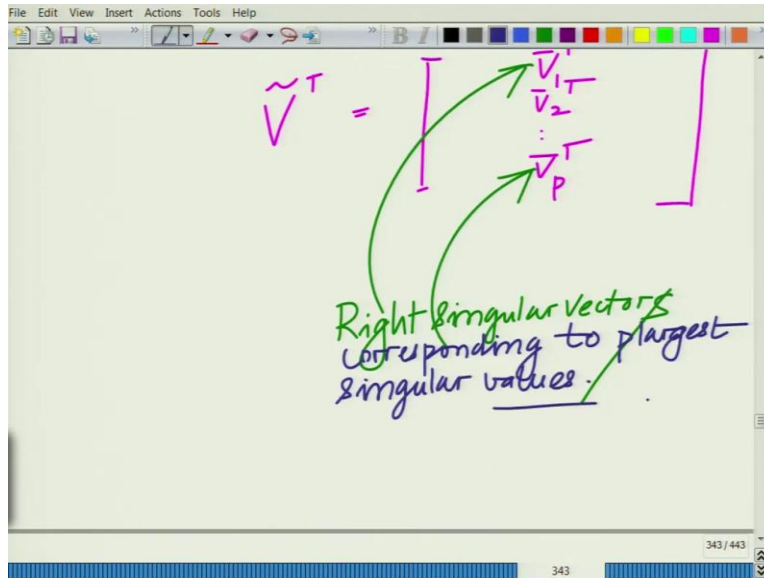 File Edit View Insert Actions Tools Help
B I
Ṽᵀ =
V̄₁ᵀ
V̄₂ᵀ
:
V̄ₚᵀ
Right singular vectors
corresponding to p largest
singular values.
343 / 443
343